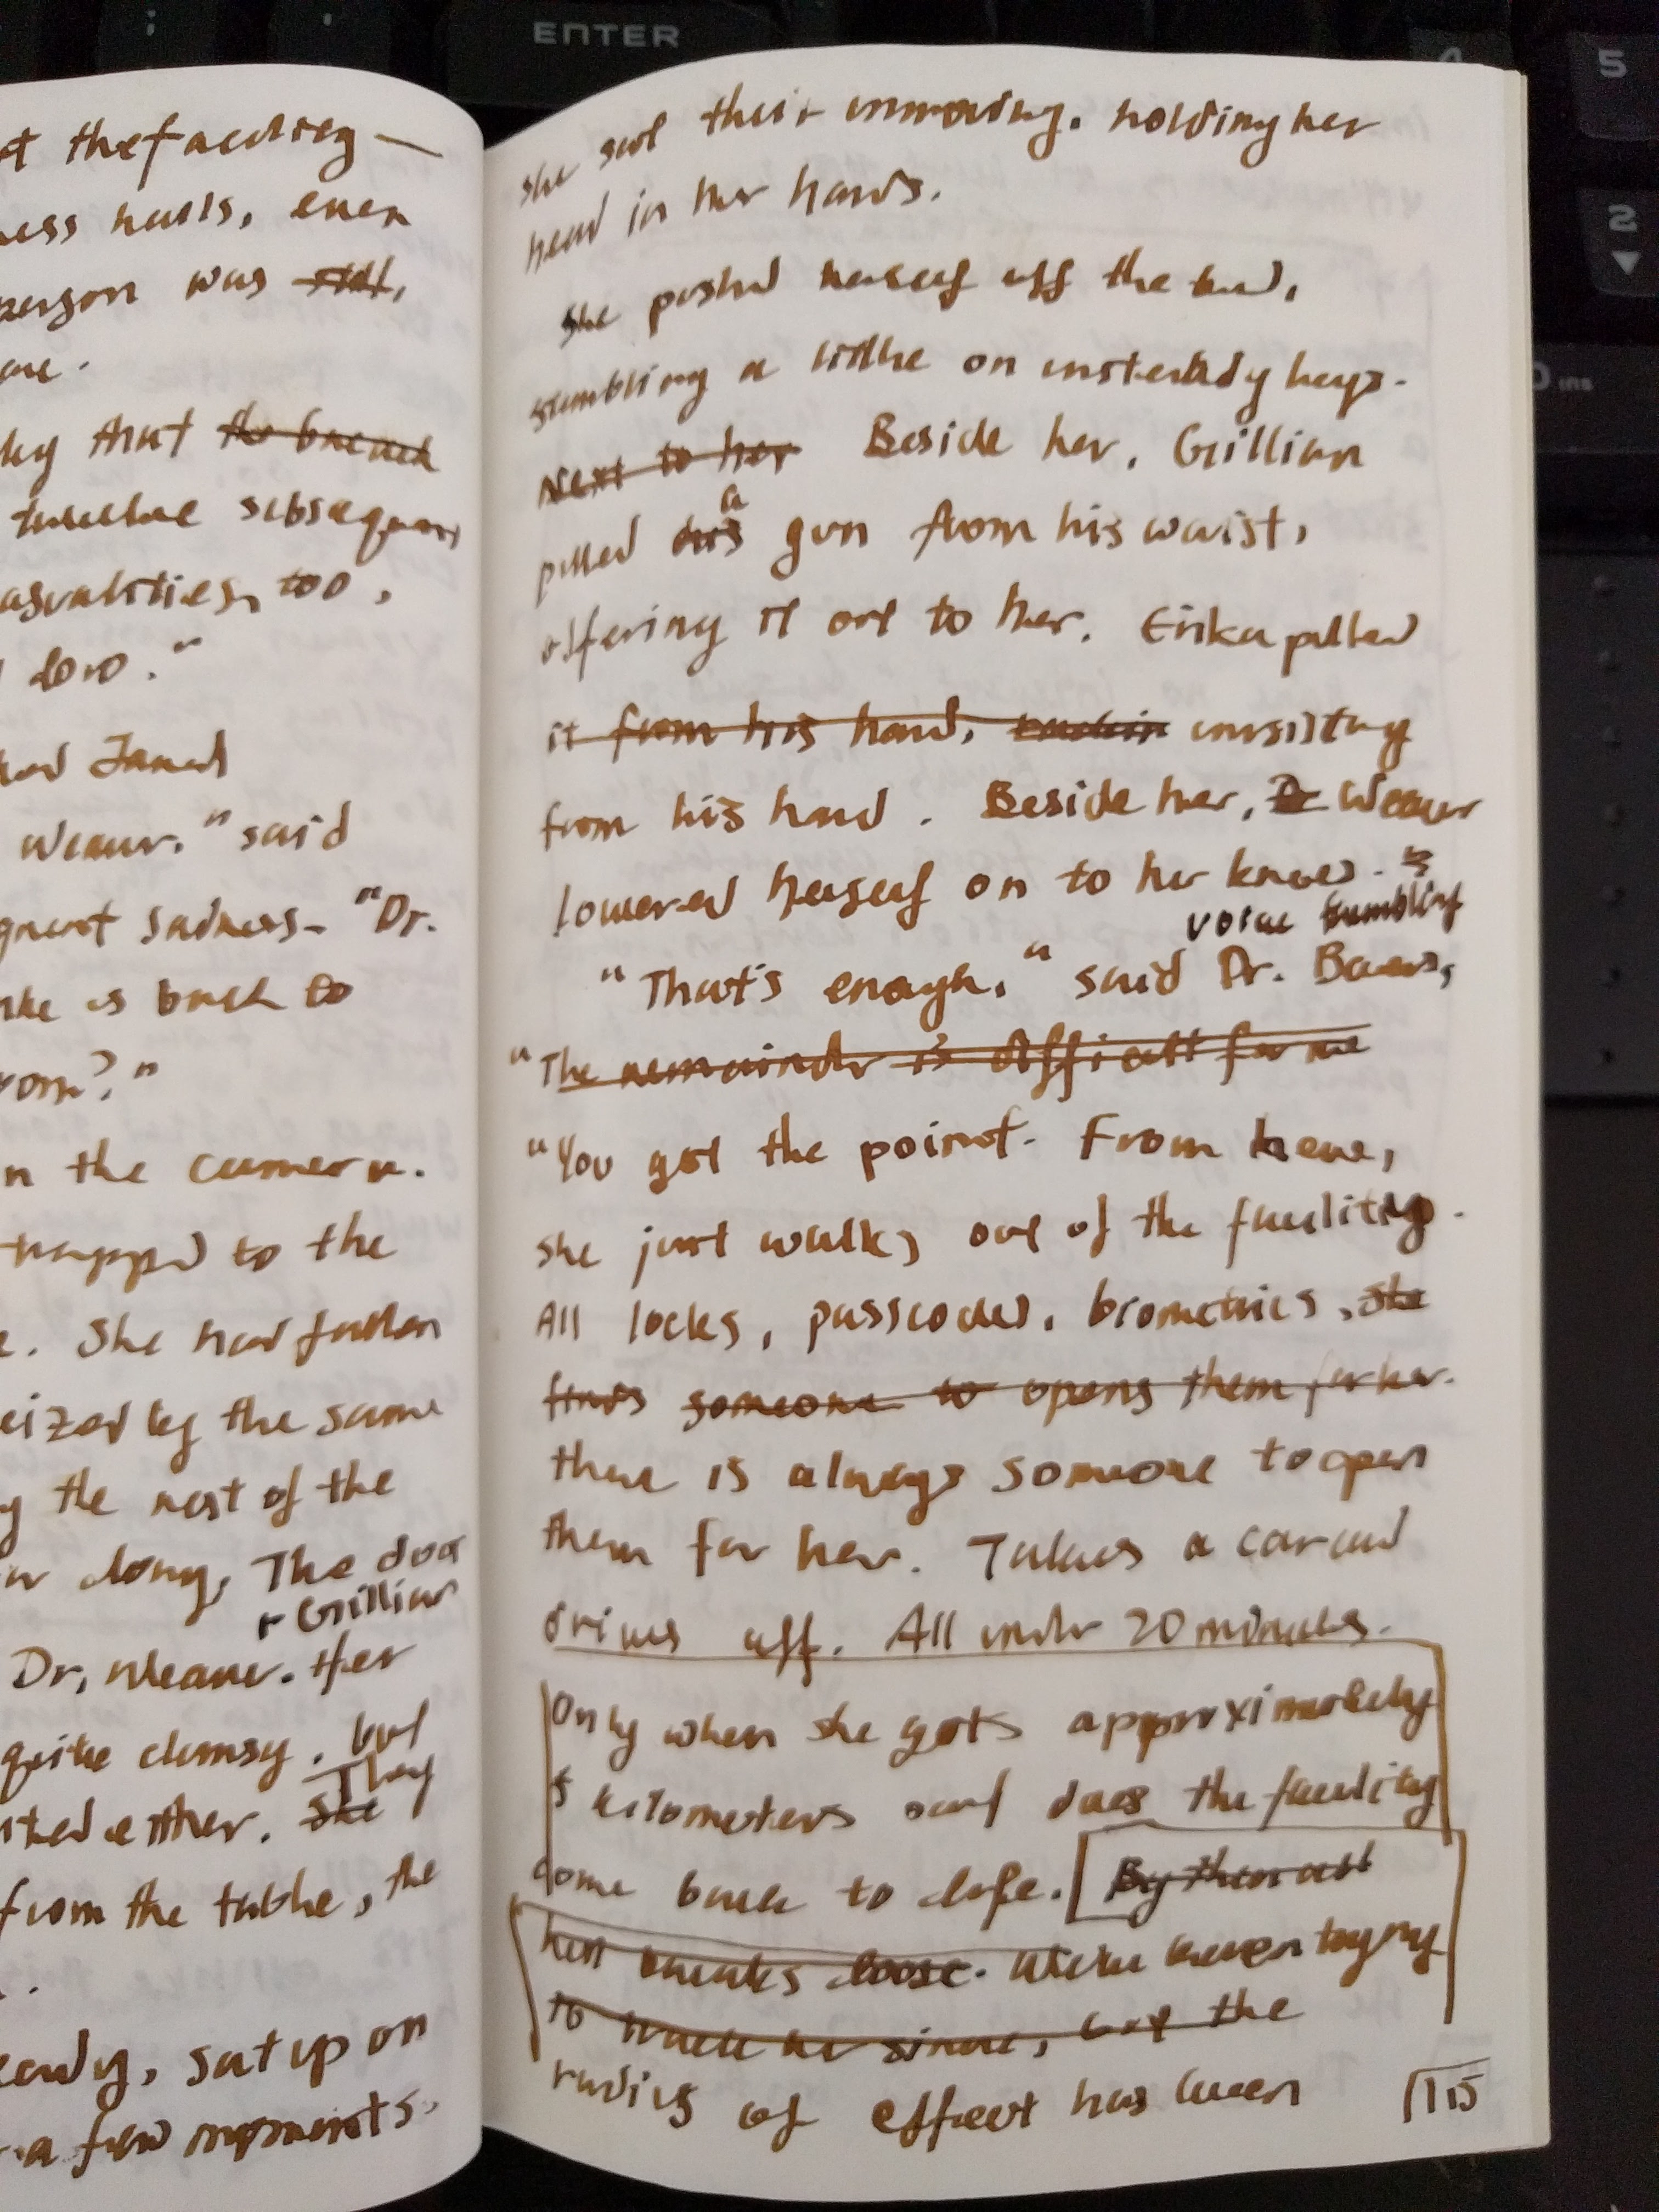 ENTER
5
4
2
ins
at the facility —
ness halls, even
person was still,
one.
key that the breach
twelve subsequent
casualties, too,
low."
Weaver." said
great sadness. "Dr.
is back to
room?"
on the camera.
trapped to the
She had fallen
seized by the same
the rest of the
along. The door
+ Grillian
Dr. Weaver. Her
quite clumsy, but
They
either. She
from the table, the
ready, sat up on
a few moments.
she sat their unmoving. holding her
head in her hands.
She pushd herself off the bed,
stumbling a little on unsteady legs.
Next to her Beside her, Grillian
a
pulled his gun from his waist,
offering it out to her. Erika pulled
it from his hand, unsiltng
from his hand. Beside her, Dr Weaver
lowered herself on to her knees.
voice trembling
"That's enough," said Dr. Bauers,
"The remainder is difficult for me
"You get the point. From here,
she just walks out of the facility.
All locks, passcodes, biometrics, she
finds someone to opens them for her.
there is always someone to open
them for her. Takes a car and
drives off. All under 20 minutes.
Only when she gets approximately
5 kilometers out does the facility
come back to life. By then all
hell breaks loose. We've been trying
to track her since, but the
radius of effect has been
115